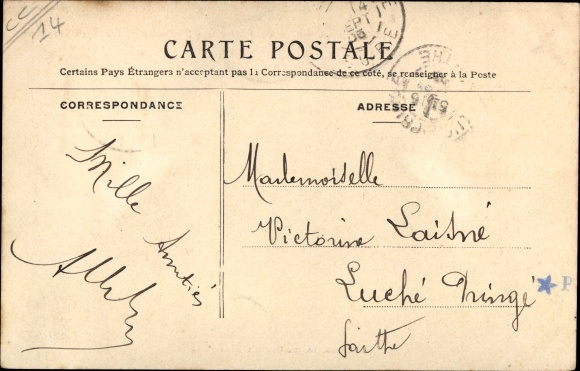 14
CARTE POSTALE
Certains Pays Étrangers n'acceptant pas la Correspondance de ce côté, se renseigner à la Poste
CORRESPONDANCE
ADRESSE
Mille
Amitiés
Mademoiselle
Victorine Laisné
Luché Pringé
Sarthe